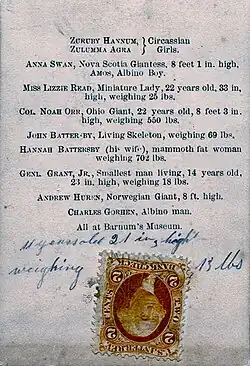 ZURUBY HANNUM, } Circassian
ZULUMMA AGRA } Girls.
ANNA SWAN, Nova Scotia Giantess, 8 feet 1 in. high,
AMOS, Albino Boy.
MISS LIZZIE READ, Miniature Lady, 22 years old, 33 in,
high, weighing 25 lbs.
COL. NOAH ORR, Ohio Giant, 22 years old, 8 feet 3 in.
high, weighing 550 lbs.
JOHN BATTERBY, Living Skeleton, weighing 69 lbs.
HANNAH BATTERSBY (his wife), mammoth fat woman
weighing 702 lbs.
GENL. GRANT, JR., Smallest man living, 14 years old,
23 in. high, weighing 18 lbs.
ANDREW HUREN, Norwegian Giant, 8 ft. high.
CHARLES GORHEN, Albino man.
All at Barnum's Museum.
years old 21 in high
weighing 13 lbs
2 CENTS TWO 2
U.S. INTER. REV.